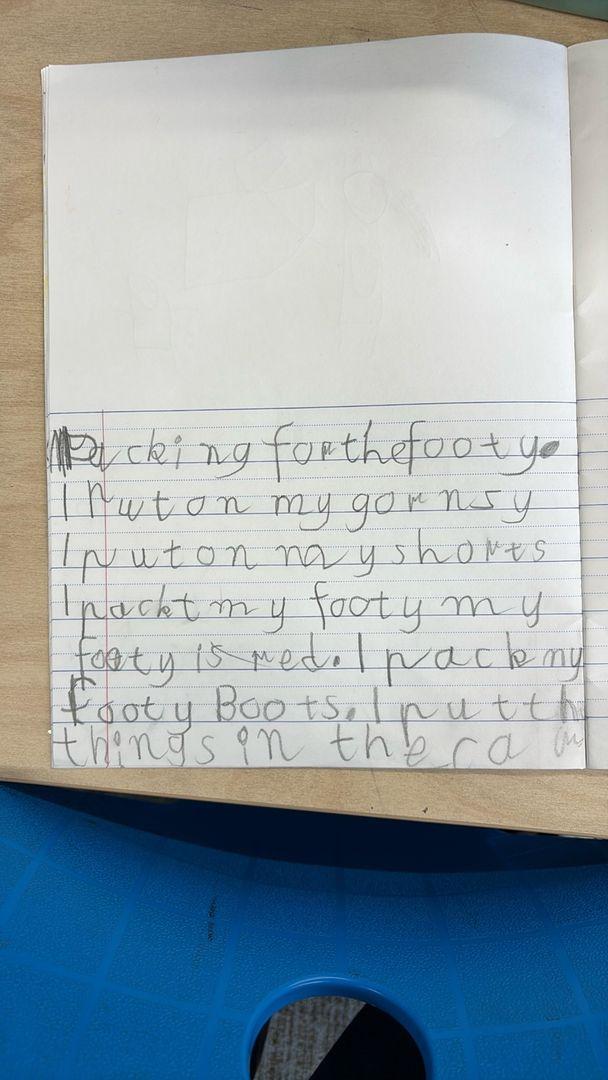 Packing for the footy.
I put on my gornsy
I put on my shorts
I packt my footy my
footy is red. I pack my
footy Boots. I put th
things in the ca